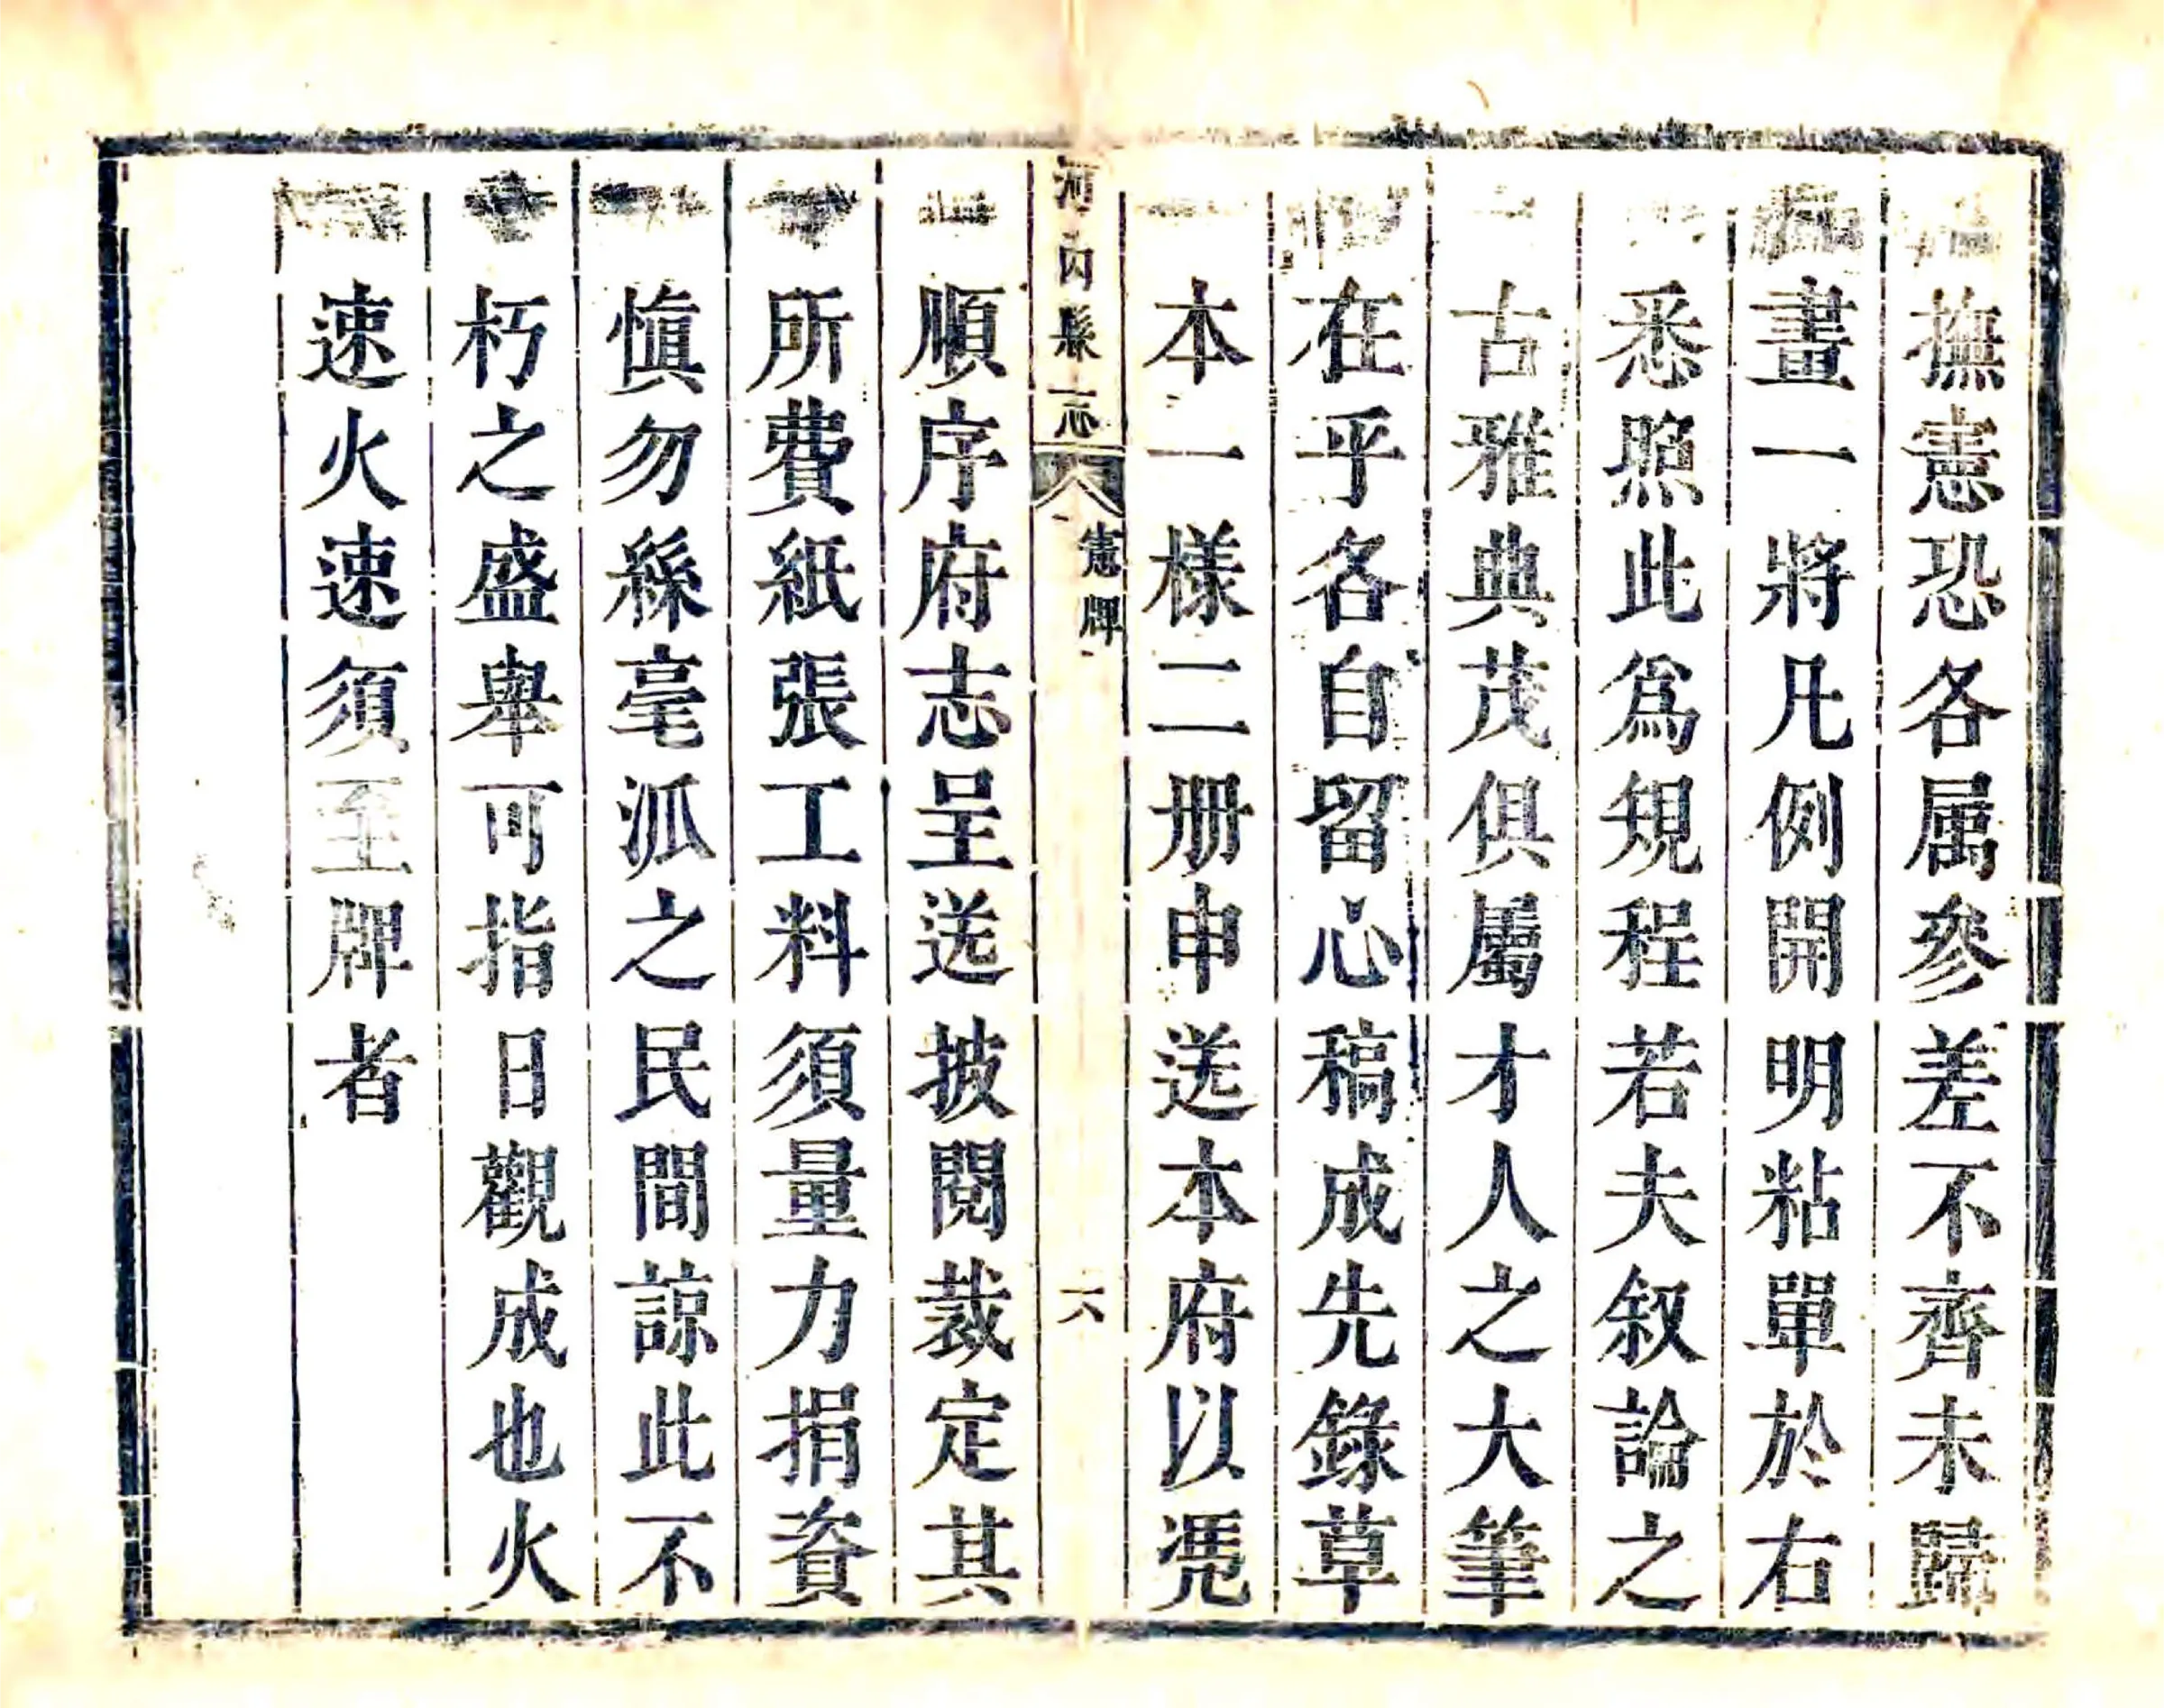 撫憲恐各属參差不齊未歸
畫一將凡例開明粘單於右
悉照此爲規程若夫叙論之
古雅典茂俱屬才人之大筆
在乎各自留心稿成先錄草
本一樣二册申送本府以凴
河内縣志
憲牌
六
順序府志呈送披閱裁定其
所費紙張工料須量力捐資
慎勿絲毫泒之民間諒此不
朽之盛舉可指日觀成也火
速火速須至牌者